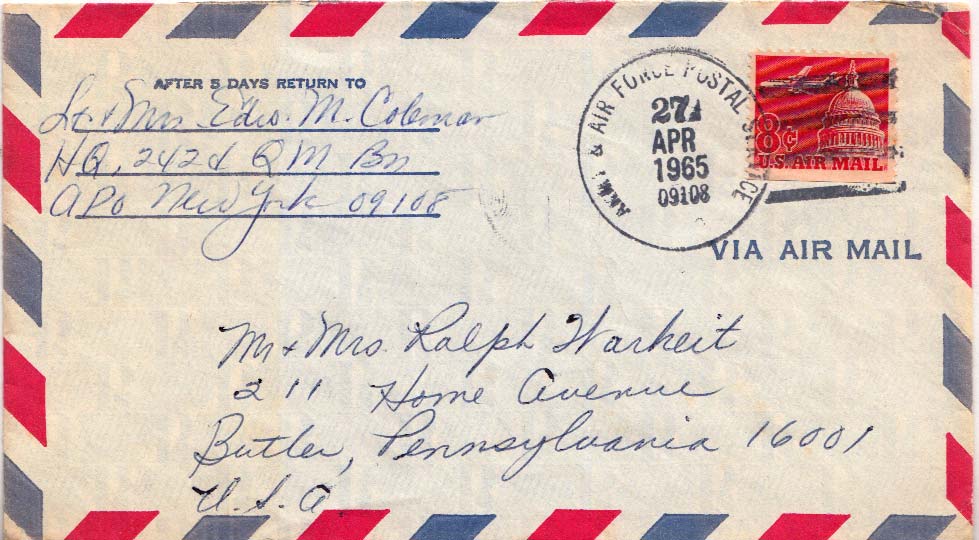 AFTER 5 DAYS RETURN TO
Lt + Mrs Edw. M. Coleman
HQ, 242d QM Bn
APO New York 09108
ARMY & AIR FORCE POSTAL SERVICE
27
APR
1965
09108
8¢
U.S. AIR MAIL
VIA AIR MAIL
Mr + Mrs. Ralph Warheit
211 Home Avenue
Butler, Pennsylvania 16001
U.S.A